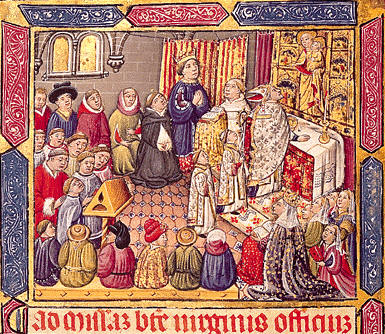 ad missaz bte virginis officiuz